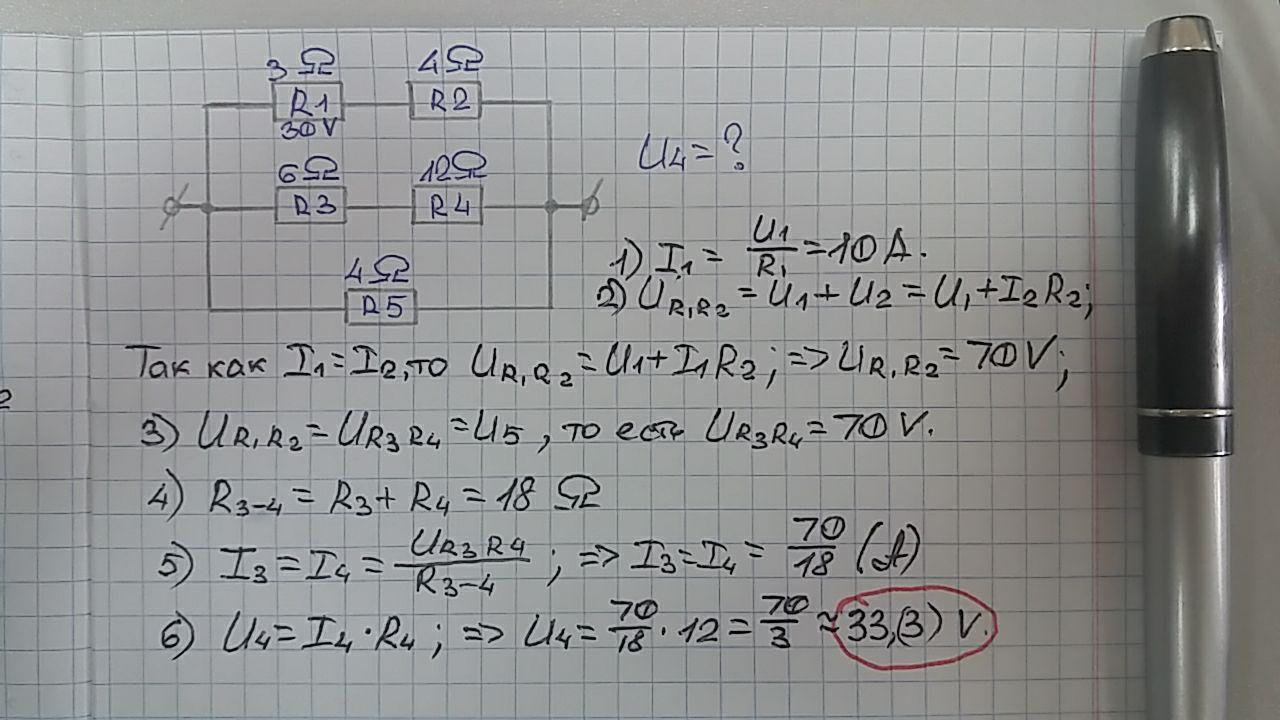 3 Ω 4Ω
R1 R2
30V
U4 = ?
6Ω 12Ω
R3 R4
1) I1 = U1/R1 = 10 A.
4Ω
R5
2) UR1R2 = U1 + U2 = U1 + I2R2;
Так как I1 = I2, то UR1R2 = U1 + I1R2; => UR1R2 = 70 V;
3) UR1R2 = UR3R4 = U5, то есть UR3R4 = 70 V.
4) R3-4 = R3 + R4 = 18 Ω
5) I3 = I4 = UR3R4/R3-4; => I3 = I4 = 70/18 (A)
6) U4 = I4 · R4; => U4 = 70/18 · 12 = 70/3 ≈ 33,(3) V.
2